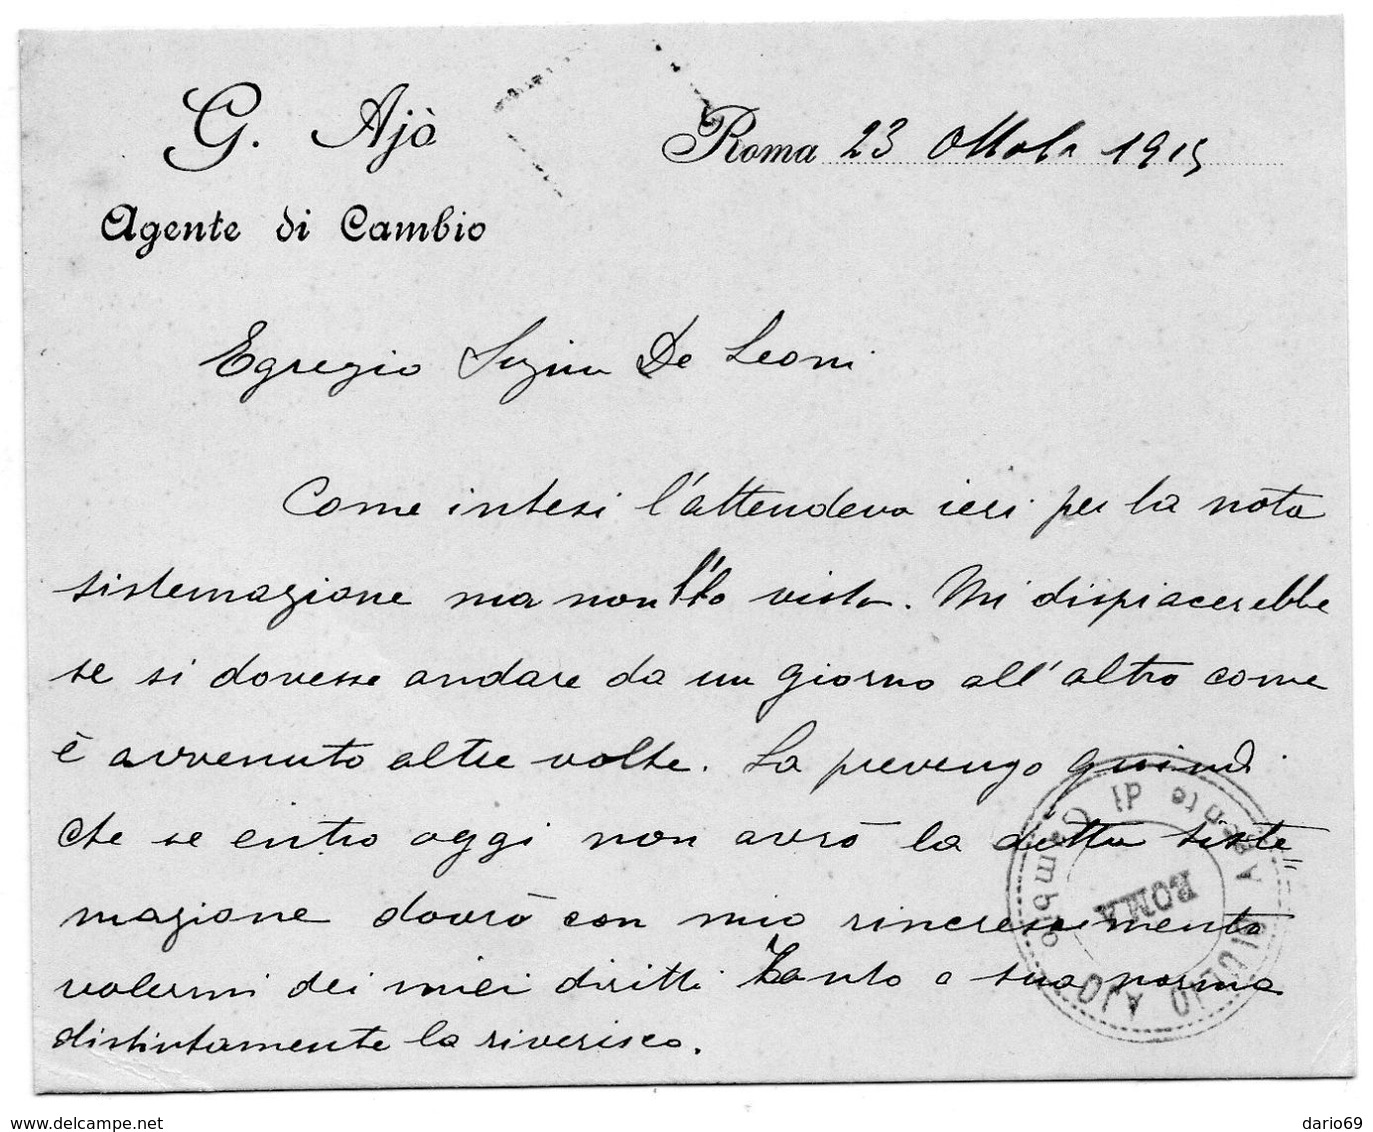 G. Ajò
Agente di Cambio
Roma 23 Ottobr 1915
Egregio Signor De Leoni
Come intesi l'attendevo ieri per la nota
sistemazione ma non l'ho visto. Mi dispiacerebbe
se si dovesse andare da un giorno all'altro come
è avvenuto altre volte. La prevengo quindi
che se entro oggi non avrò la detta siste=
mazione dovrò con mio rincrescimento
valermi dei miei diritti Tanto a sua norma
distintamente la riverisco.
AJO Agente di Cambio
ROMA
www.delcampe.net
dario69